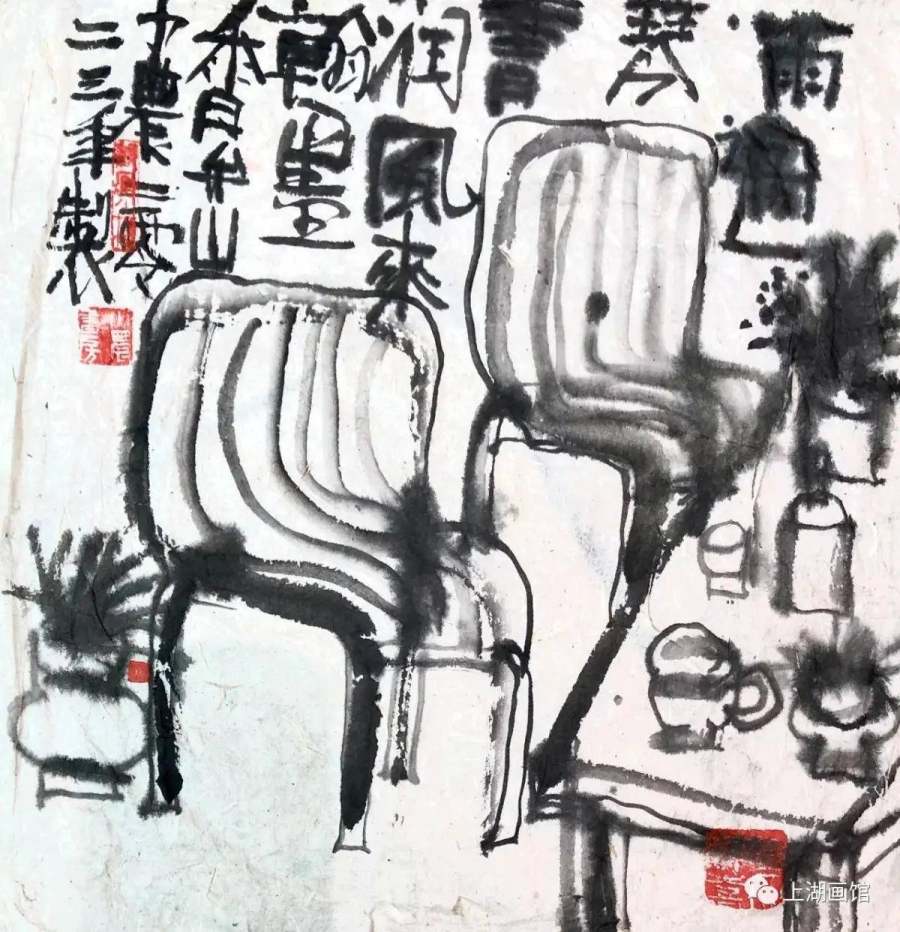 雨過
琴
書
潤風來
翰墨
香日弁山
農二零
二三年製
上湖画馆